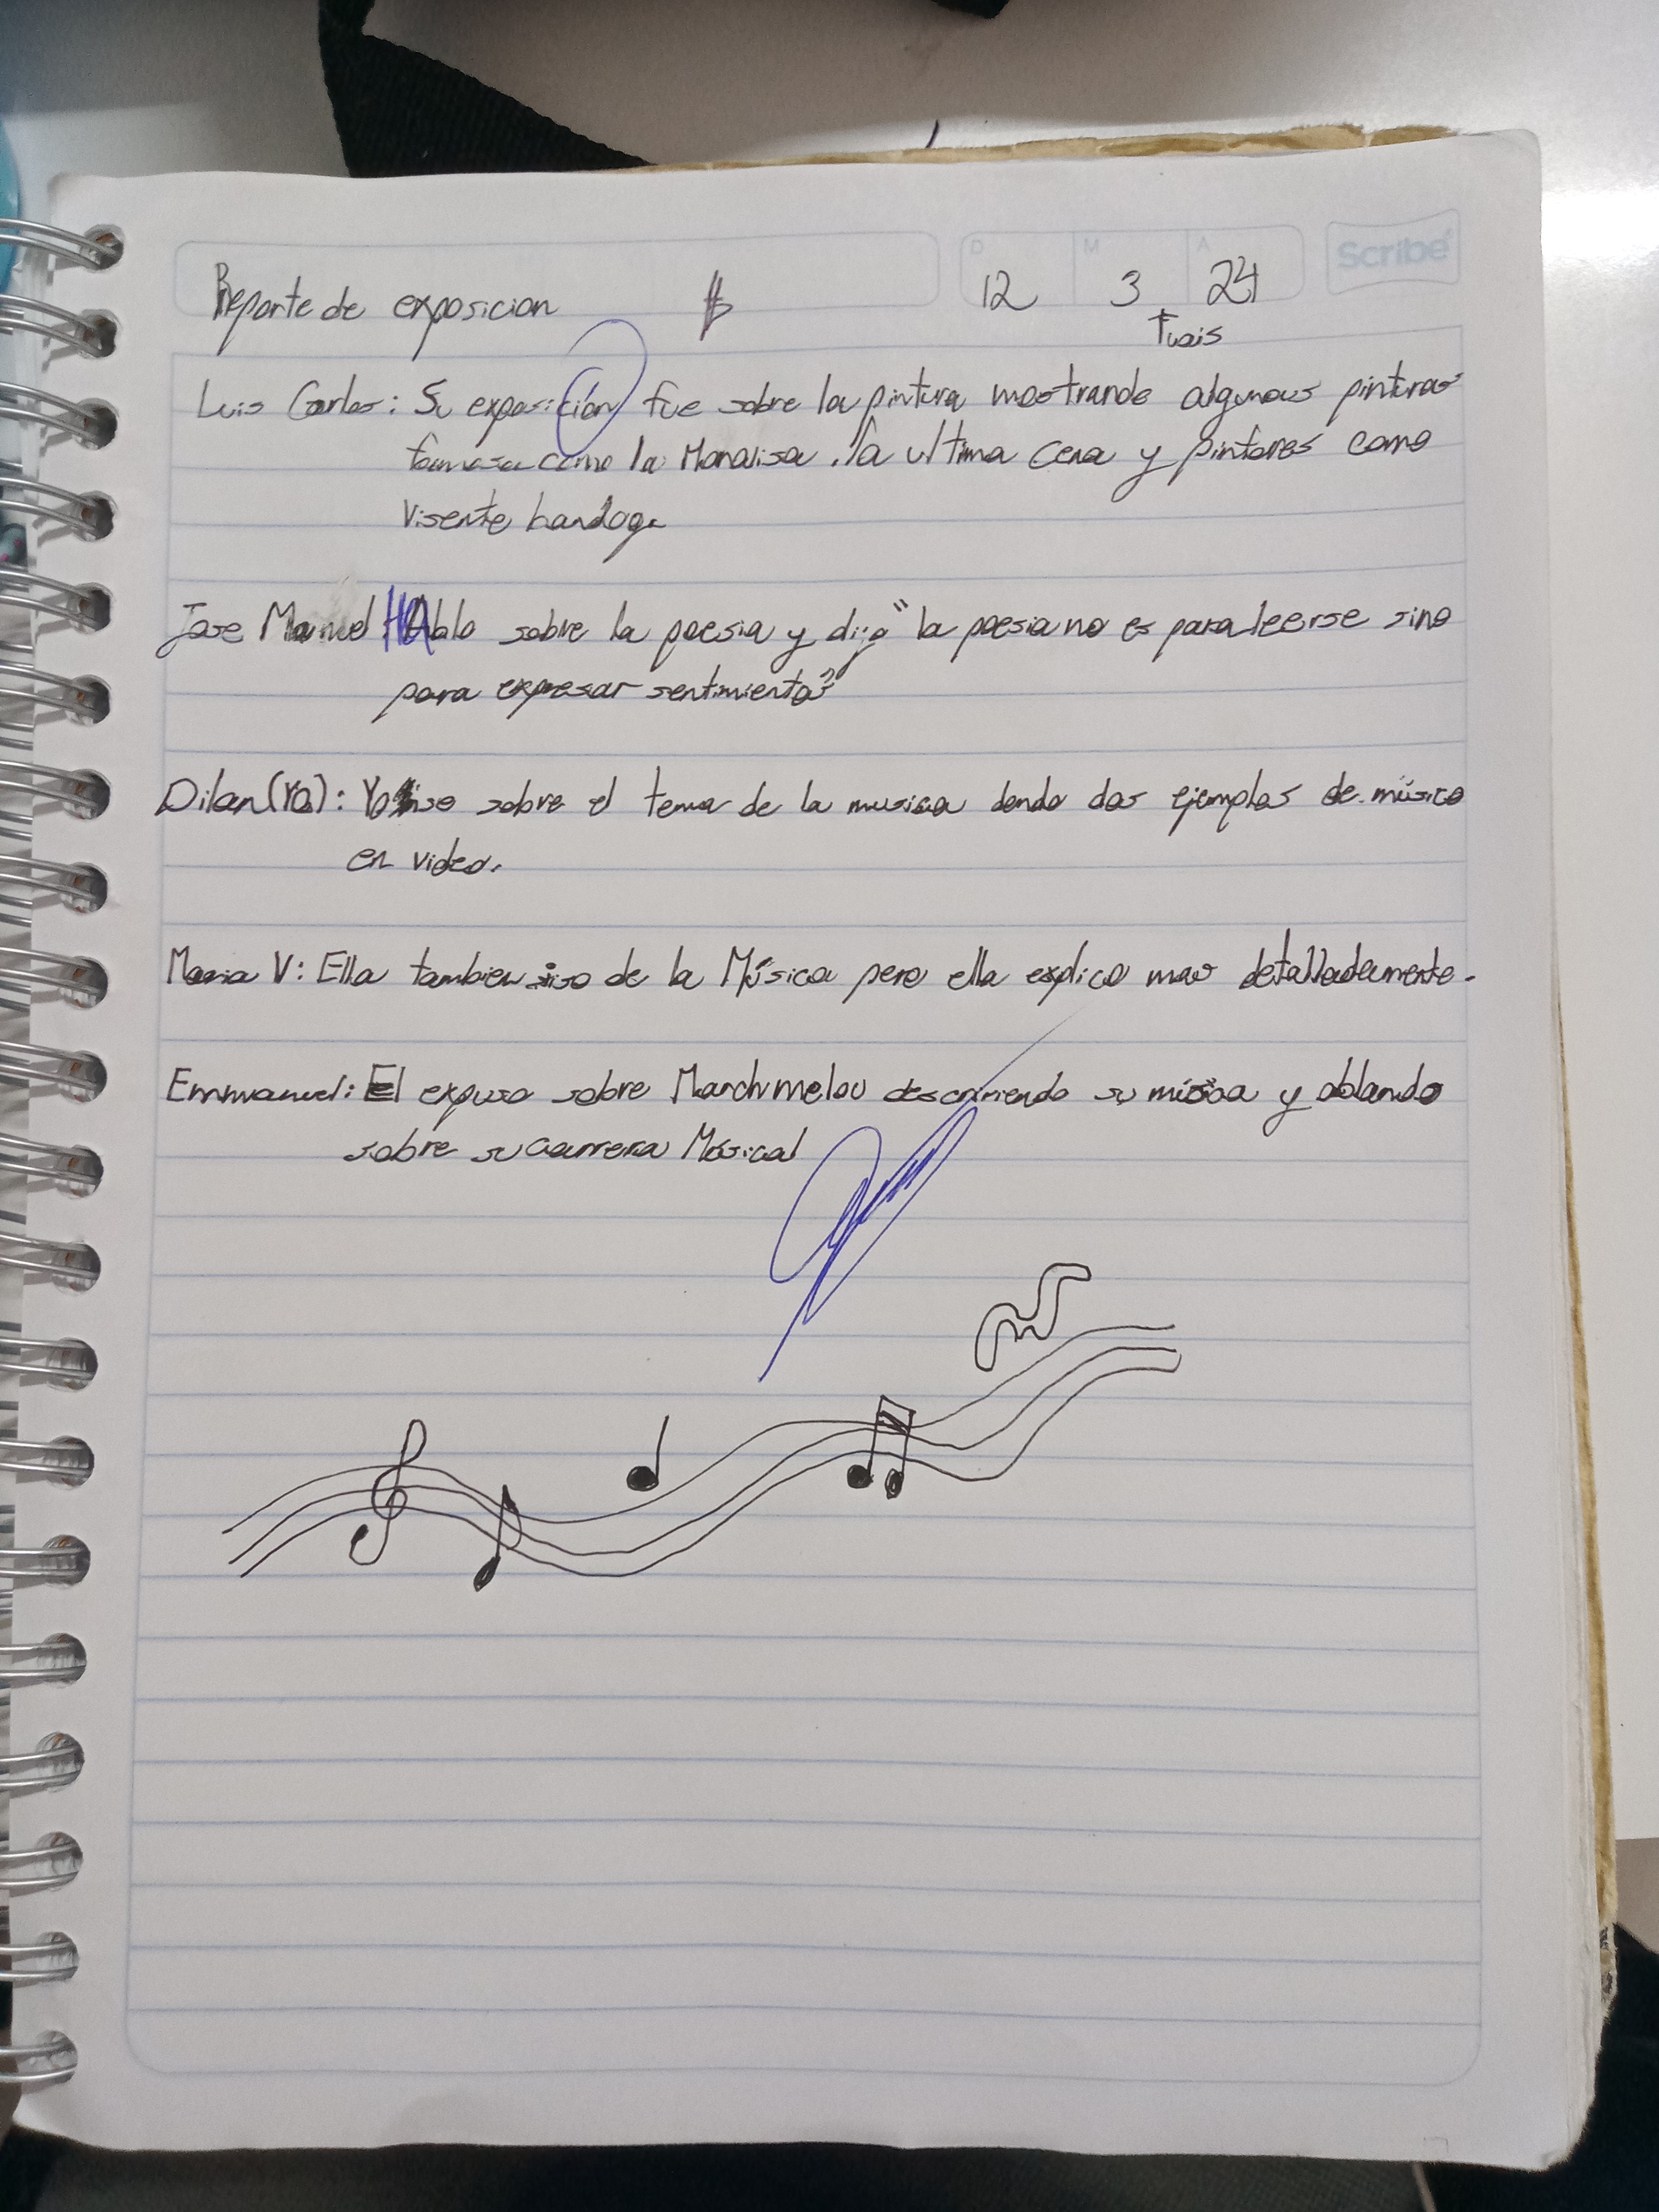 D M A Scribe
Reporte de exposicion 12 3 24
Luis Carlos: Su exposición fue sobre la pintura mostrando algunas pinturas
famosa como la Monalisa, la ultima cena y pintores como
Visente bandog.
Jose Manuel HAblo sobre la poesia y dijo "la poesia no es para leerse sino
para expresar sentimientos"
Dilan (Yo): Yo iso sobre el tema de la musica dando dos ejemplos de músico
en video.
Maria V: Ella tambien iso de la Música pero ella explico mas detalladamente.
Emmanuel: El expuso sobre Marchmelou descriniendo su música y ablando
sobre su carrera Músical